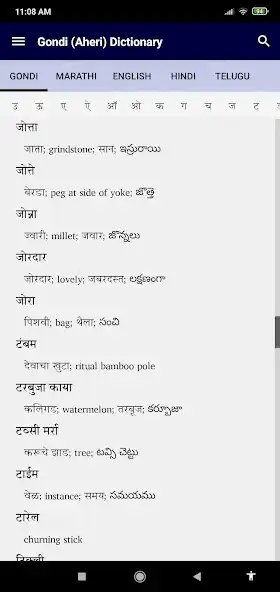 11:08 AM
94
Gondi (Aheri) Dictionary
GONDI MARATHI ENGLISH HINDI TELUGU
उ ऊ ए ऐ ऑ ओ क ग च ज ट
जोत्ता
जाता; grindstone; सान; ఇస్రురాయి
जोत्ते
बेरडा; peg at side of yoke; జొత్తె
जोन्ना
ज्वारी; millet; जवार; జొన్నలు
जोरदार
जोरदार; lovely; जबरदस्त; లక్షణంగా
जोरा
पिशवी; bag; थैला; సంచి
टंबम
देवाचा खुटा; ritual bamboo pole
टरबुजा काया
कलिगड; watermelon; तरबूज; కర్బూజా
टव्सी मर्रा
करूचे झाड; tree; టవ్సి చెట్టు
टाईम
वेळ; instance; समय; సమయము
टारेल
churning stick